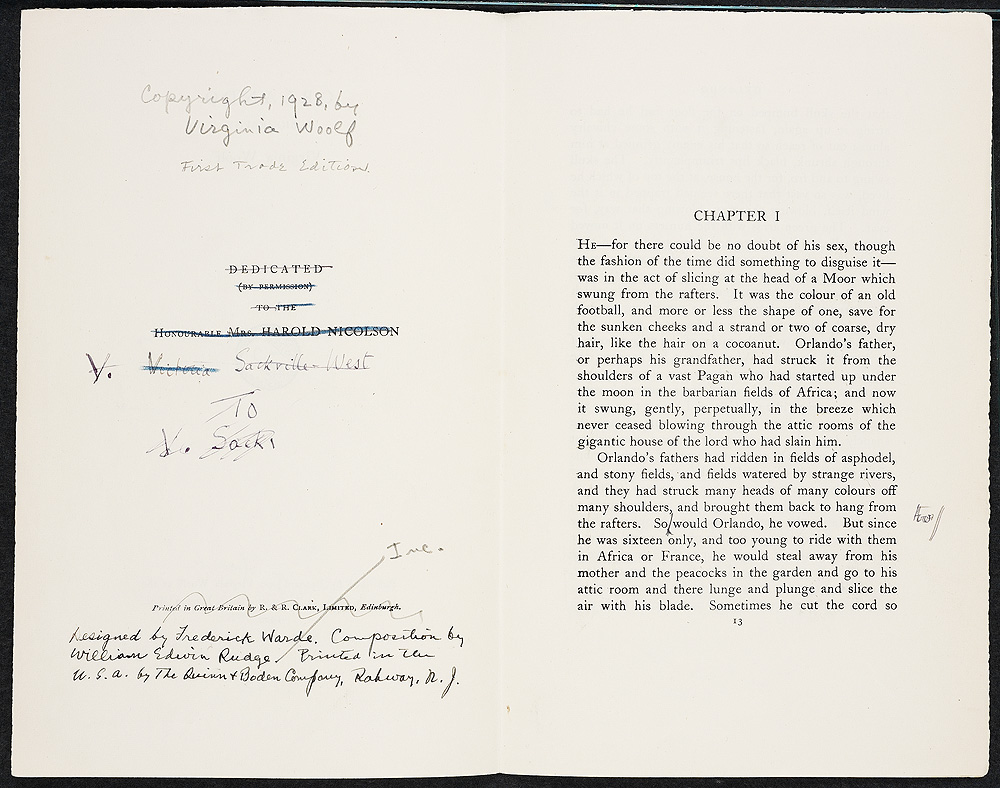 Copyright, 1928, by
Virginia Woolf
First Trade Edition.
DEDICATED
(BY PERMISSION)
TO THE
HONOURABLE MRS. HAROLD NICOLSON
V. Victoria Sackville-West
To
V. Sack
Inc.
Printed in Great Britain by R. & R. CLARK, LIMITED, Edinburgh.
Designed by Frederick Warde. Composition by
William Edwin Rudge Printed in the
U. S. A. by The Quinn & Boden Company, Rahway, N. J.
CHAPTER I
HE—for there could be no doubt of his sex, though
the fashion of the time did something to disguise it—
was in the act of slicing at the head of a Moor which
swung from the rafters. It was the colour of an old
football, and more or less the shape of one, save for
the sunken cheeks and a strand or two of coarse, dry
hair, like the hair on a cocoanut. Orlando's father,
or perhaps his grandfather, had struck it from the
shoulders of a vast Pagan who had started up under
the moon in the barbarian fields of Africa; and now
it swung, gently, perpetually, in the breeze which
never ceased blowing through the attic rooms of the
gigantic house of the lord who had slain him.
Orlando's fathers had ridden in fields of asphodel,
and stony fields, and fields watered by strange rivers,
and they had struck many heads of many colours off
many shoulders, and brought them back to hang from
the rafters. So would Orlando, he vowed. But since
he was sixteen only, and too young to ride with them
in Africa or France, he would steal away from his
mother and the peacocks in the garden and go to his
attic room and there lunge and plunge and slice the
air with his blade. Sometimes he cut the cord so
13